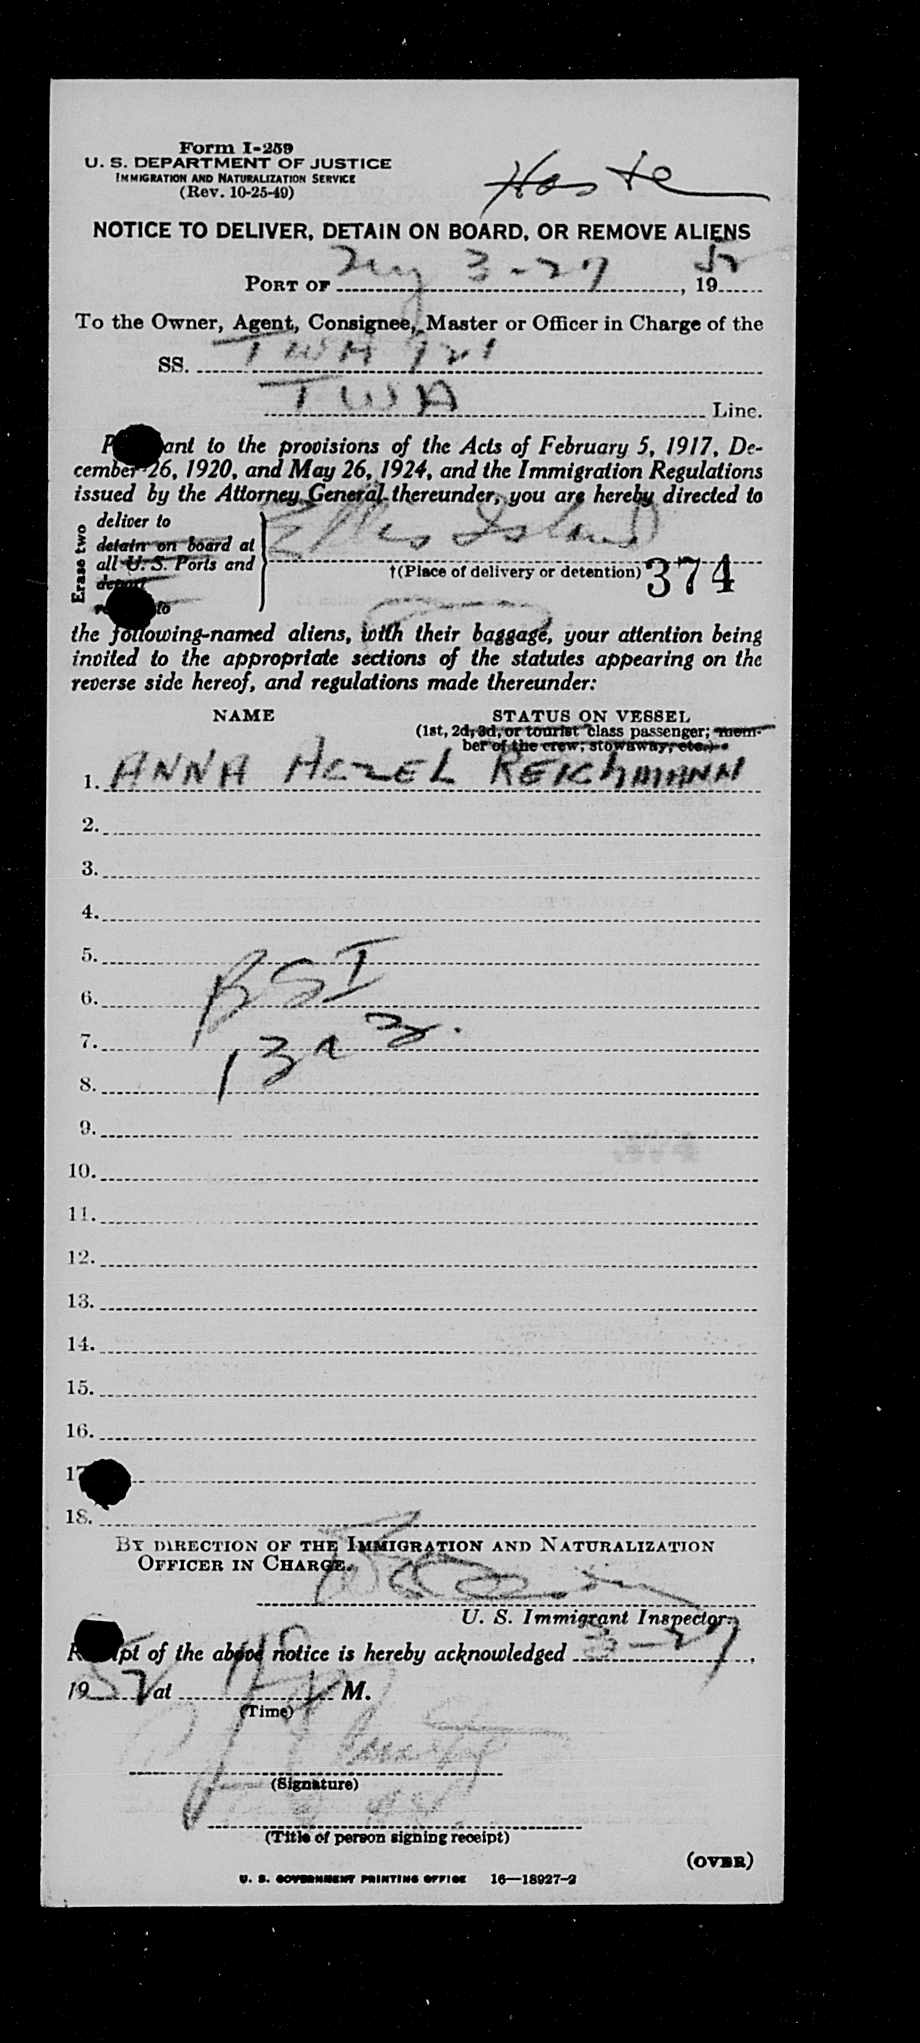 Form I-259
U. S. DEPARTMENT OF JUSTICE
IMMIGRATION AND NATURALIZATION SERVICE
(Rev. 10-25-49)
NOTICE TO DELIVER, DETAIN ON BOARD, OR REMOVE ALIENS
PORT OF 3-27, 19 52
To the Owner, Agent, Consignee, Master or Officer in Charge of the
SS. TWA 921
TWA Line.
ant to the provisions of the Acts of February 5, 1917, De-
cember 26, 1920, and May 26, 1924, and the Immigration Regulations
issued by the Attorney General thereunder, you are hereby directed to
Erase two
deliver to
detain on board at
all U. S. Ports and
deport
to
Ellis Island
†(Place of delivery or detention) 374
the following-named aliens, with their baggage, your attention being
invited to the appropriate sections of the statutes appearing on the
reverse side hereof, and regulations made thereunder:
NAME STATUS ON VESSEL
(1st, 2d, 3d, or tourist class passenger; mem-
ber of the crew; stowaway, etc.)
1. ANNA ACZEL REICHMANN
2.
3.
4.
5.
BSI
6.
7.
8.
9.
10.
11.
12.
13.
14.
15.
16.
17
18.
BY DIRECTION OF THE IMMIGRATION AND NATURALIZATION
OFFICER IN CHARGE.
U. S. Immigrant Inspector.
R ipt of the above notice is hereby acknowledged 3-27,
19 52 at M.
(Time)
(Signature)
(Title of person signing receipt)
(OVER)
U. S. GOVERNMENT PRINTING OFFICE 16—18927-2